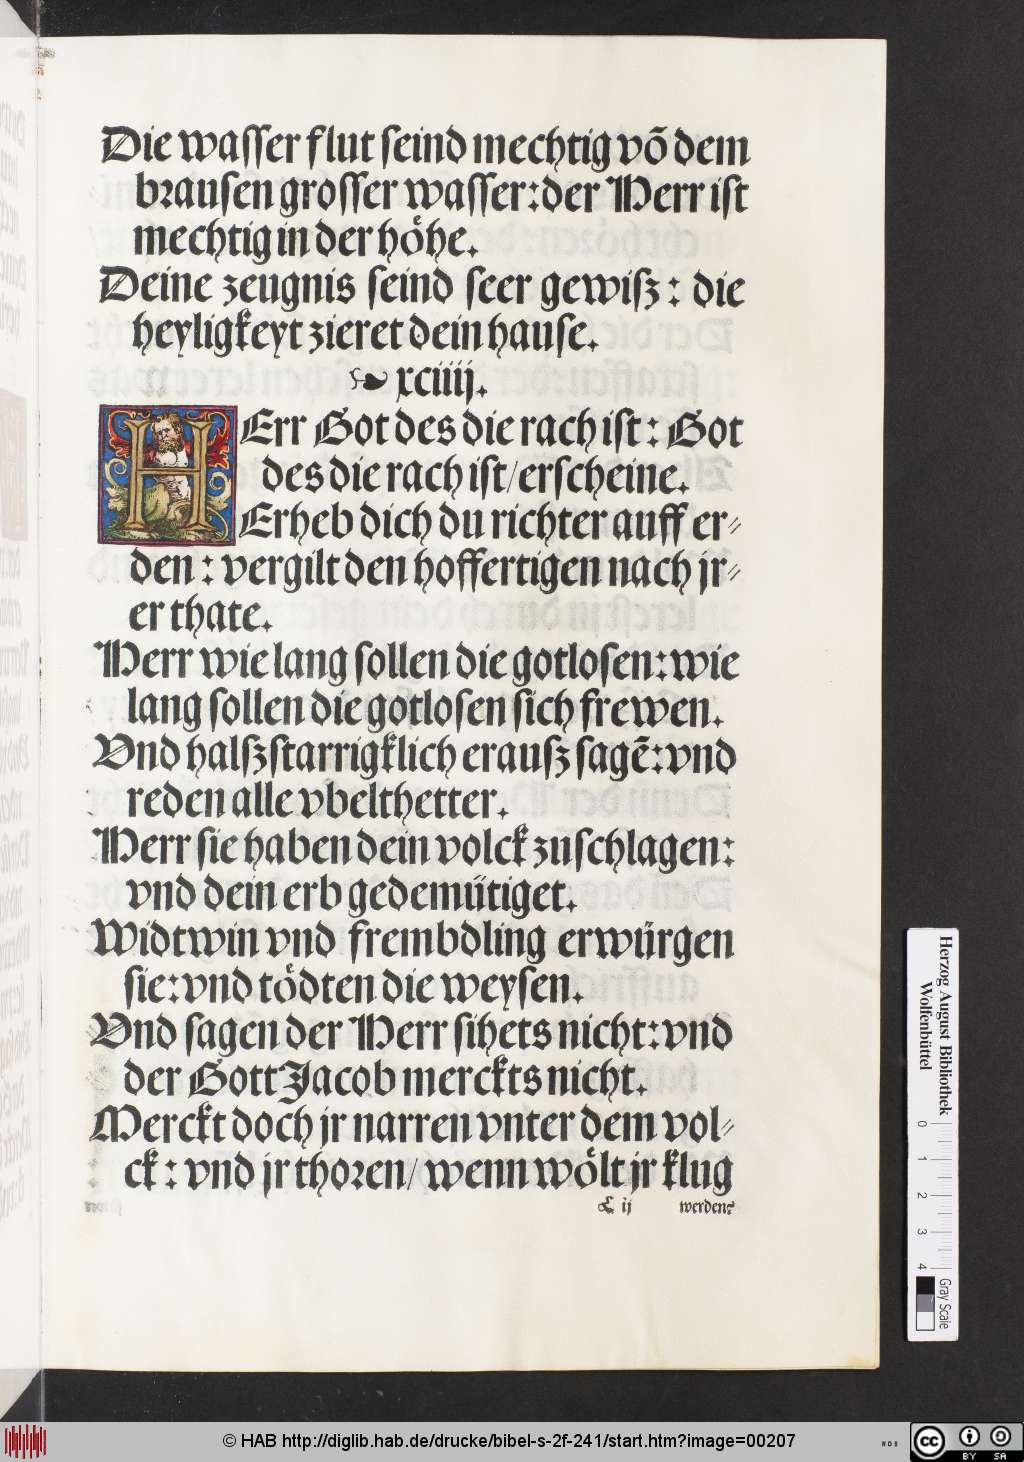 Die wasser flut seind mechtig võ dem
brausen grosser wasser: der Herr ist
mechtig in der höhe.
Deine zeugnis seind seer gewisz: die
heyligkeyt zieret dein hause.
xciiij.
HErr Got des die rach ist: Got
des die rach ist/ erscheine.
Erheb dich du richter auff er⸗
den: vergilt den hoffertigen nach jr⸗
er thate.
Herr wie lang sollen die gotlosen: wie
lang sollen die gotlosen sich frewen.
Vnd halszstarrigklich erausz sagẽ: vnd
reden alle vbelthetter.
Herr sie haben dein volck zuschlagen:
vnd dein erb gedemütiget.
Widtwin vnd frembdling erwürgen
sie: vnd tödten die weysen.
Vnd sagen der Herr sihets nicht: vnd
der Gott Jacob merckts nicht.
Merckt doch jr narren vnter dem vol⸗
ck: vnd jr thoren/ wenn wölt jr klug
ij werden?
Herzog August Bibliothek
Wolfenbüttel
0 1 2 3 4
Gray Scale
© HAB http://diglib.hab.de/drucke/bibel-s-2f-241/start.htm?image=00207
cc BY SA